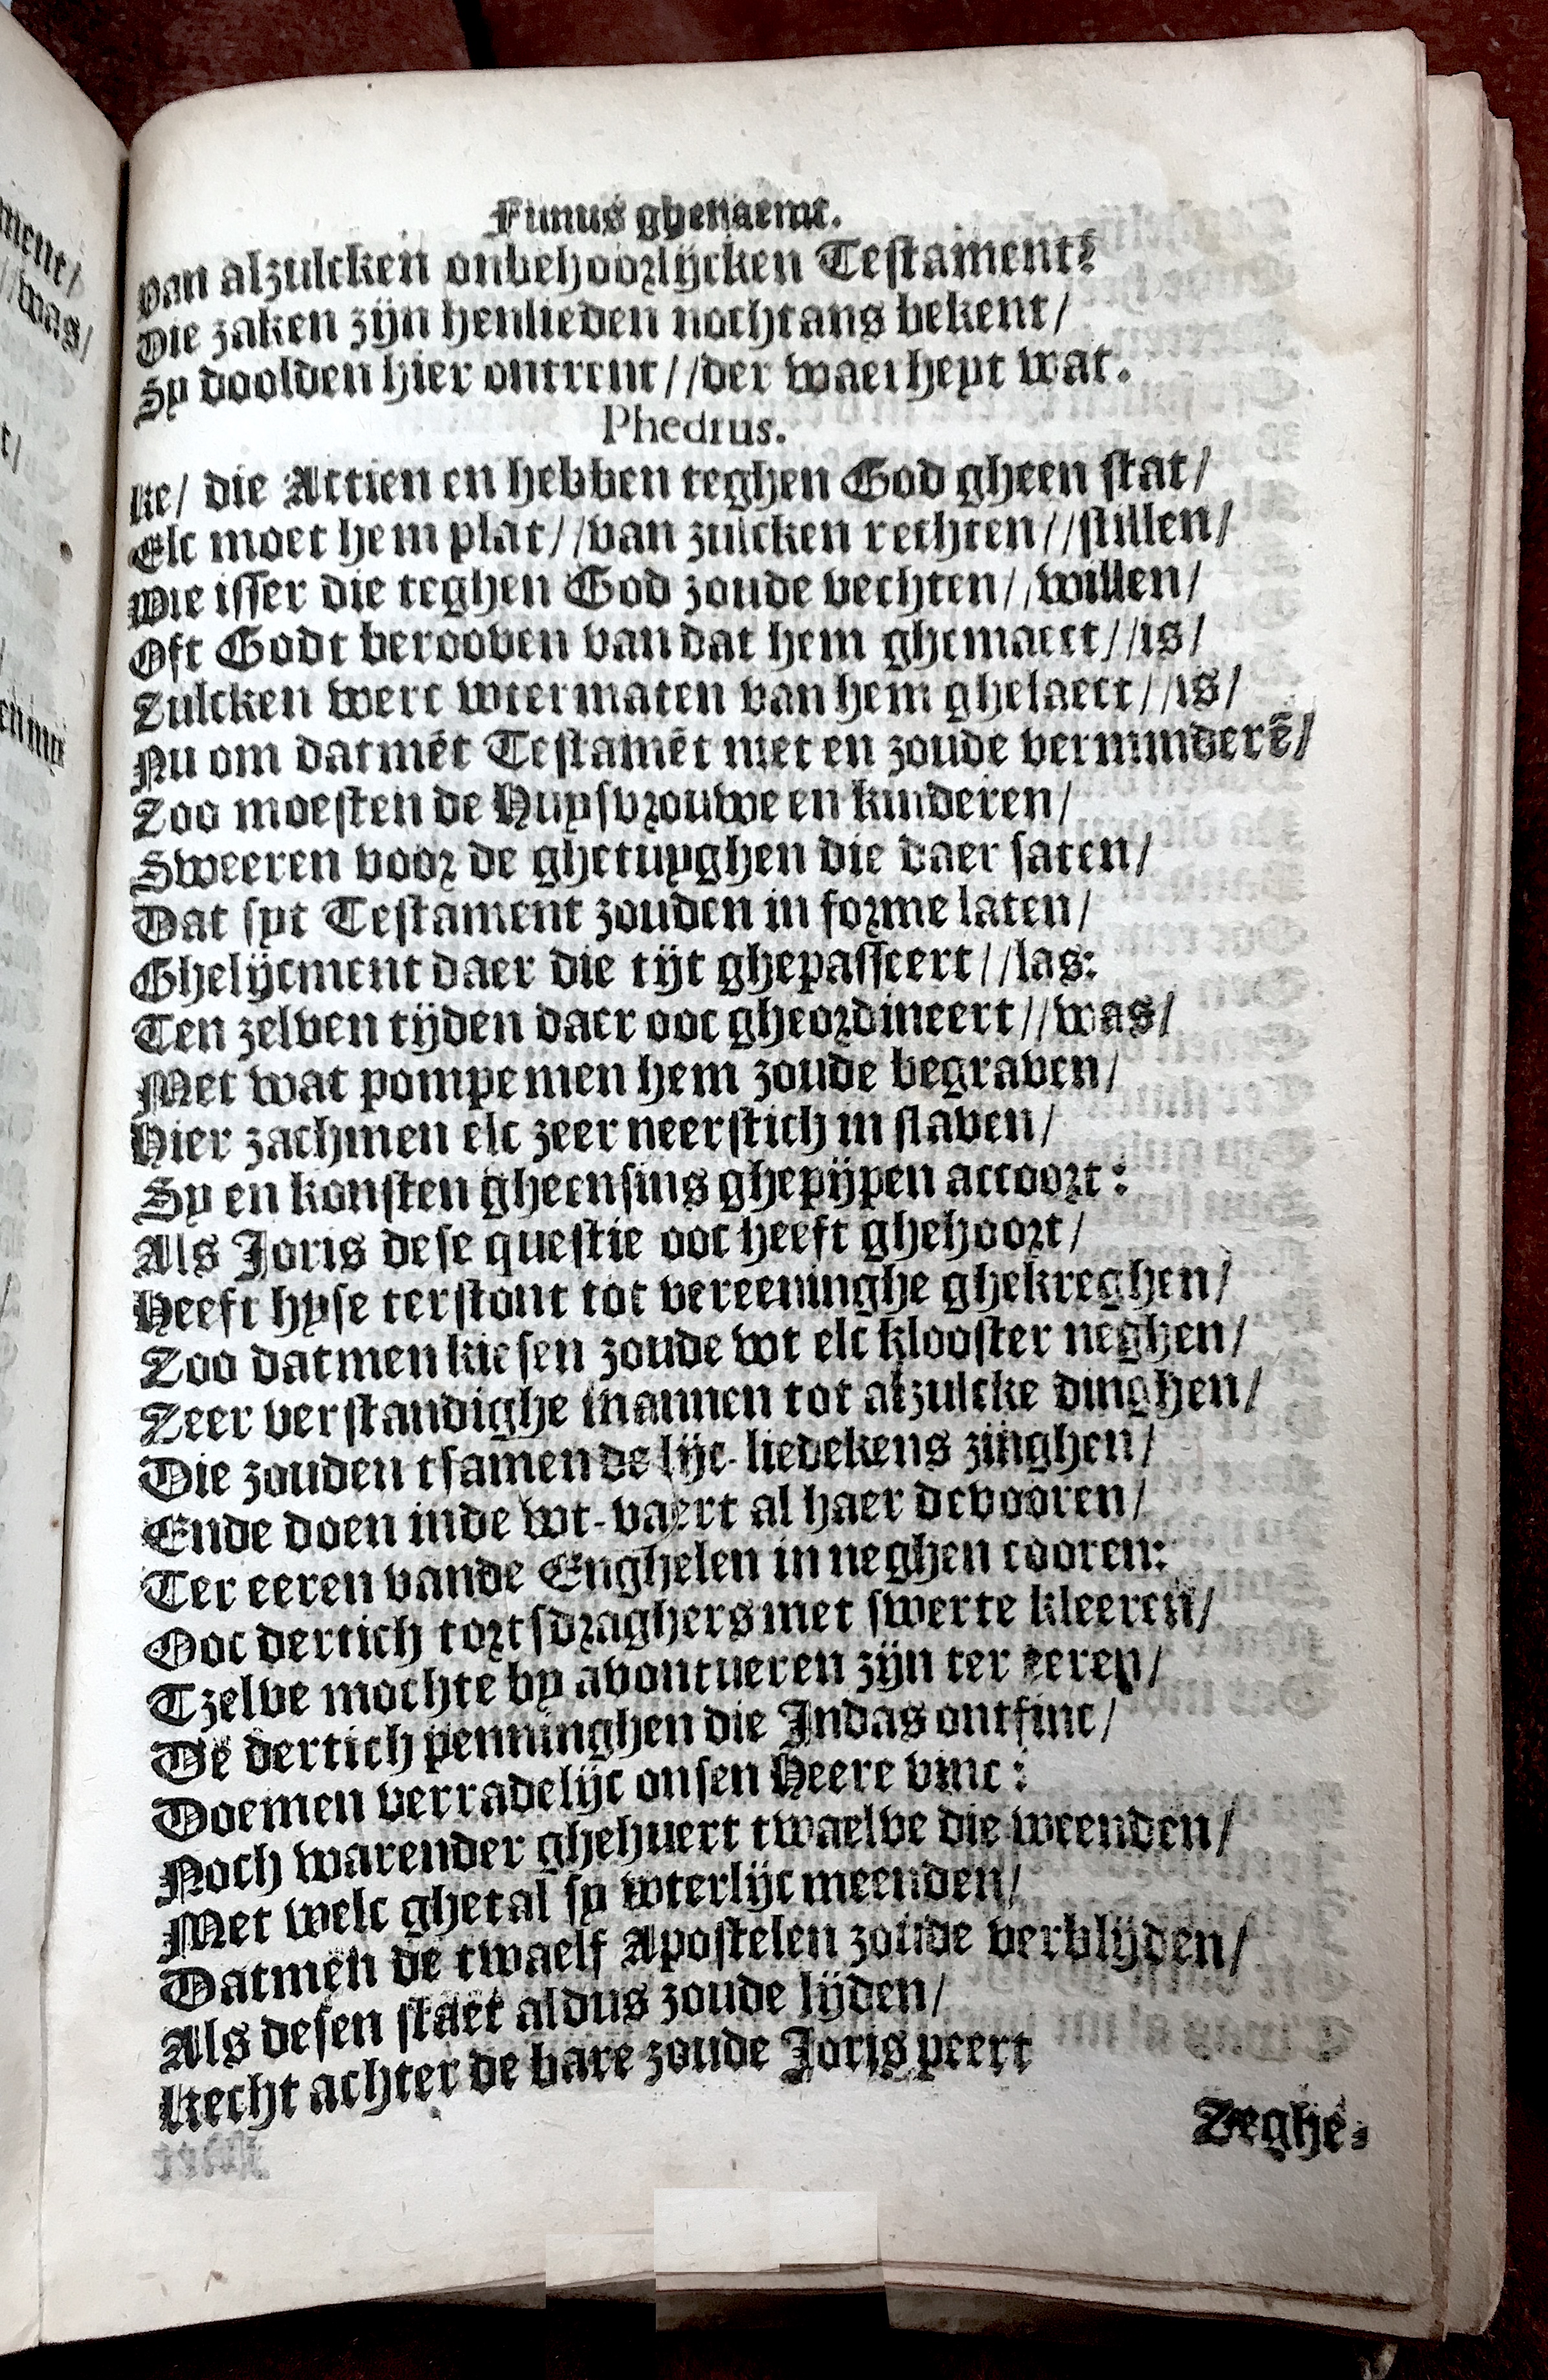 Funus ghenaemt.
Van alzulcken onbehoorlijcken Testament?
Die zaken zijn henlieden nochtans bekent/
Sy doolden hier ontrent//der waerheyt wat.
Phedrus.
Ke/ die Actien en hebben teghen God gheen stat/
Elc moet hem plat//van zulcken rechten//stillen/
Wie isser die teghen God zoude vechten//willen/
Oft Godt berooven van dat hem ghemaect//is/
Zulcken werc wtermaten van hem ghelaect//is/
Nu om datmēt Testamēt niet en zoude verminderē/
Zoo moesten de Huysvrouwe en kinderen/
Sweeren voor de ghetuyghen die daer saten/
Dat syt Testament zouden in forme laten/
Ghelijcment daer die tijt ghepasseert//las:
Ten zelven tijden daer ooc gheordineert//was/
Met wat pompe men hem zoude begraven/
Hier zachmen elc zeer neerstich in slaven/
Sy en konsten gheensins ghepijpen accoort:
Als Joris dese questie ooc heeft ghehoort/
Heeft hyse terstont tot vereeninghe ghekreghen/
Zoo datmen kiesen zoude wt elc klooster neghen/
Zeer verstandighe mannen tot alzulcke dinghen/
Die zouden tsamen de lijc-liedekens zinghen/
Ende doen inde wt-vaert al haer devooren/
Ter eeren vande Enghelen in neghen cooren:
Ooc dertich tortsdraghers met swerte kleeren/
Tzelve mochte by avontueren zijn ter eeren/
De dertich penninghen die Judas ontfinc/
Doemen verradelijc onsen Heere vinc:
Noch warender ghehuert twaelve die weenden/
Met welc ghetal sy wterlijc meenden/
Datmen de twaelf Apostelen zoude verblijden/
Als desen staet aldus zoude lijden/
Recht achter de bare zoude Joris peert
Zeghe-